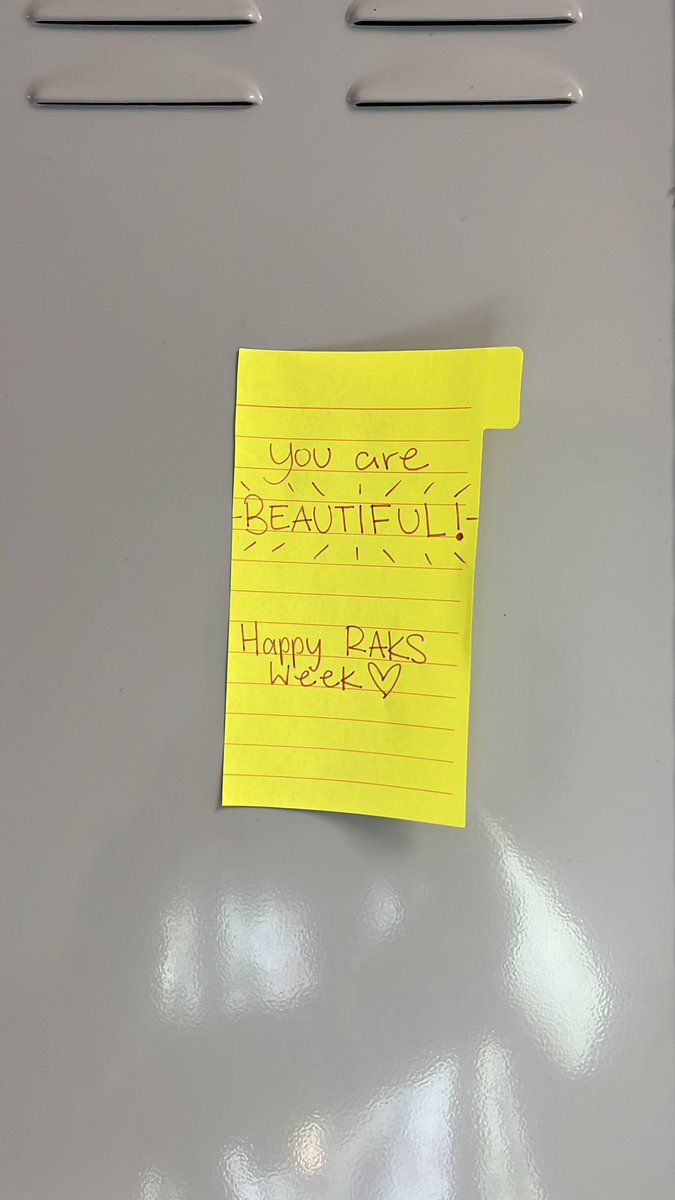 you are
BEAUTIFUL!
Happy RAKS
Week♡